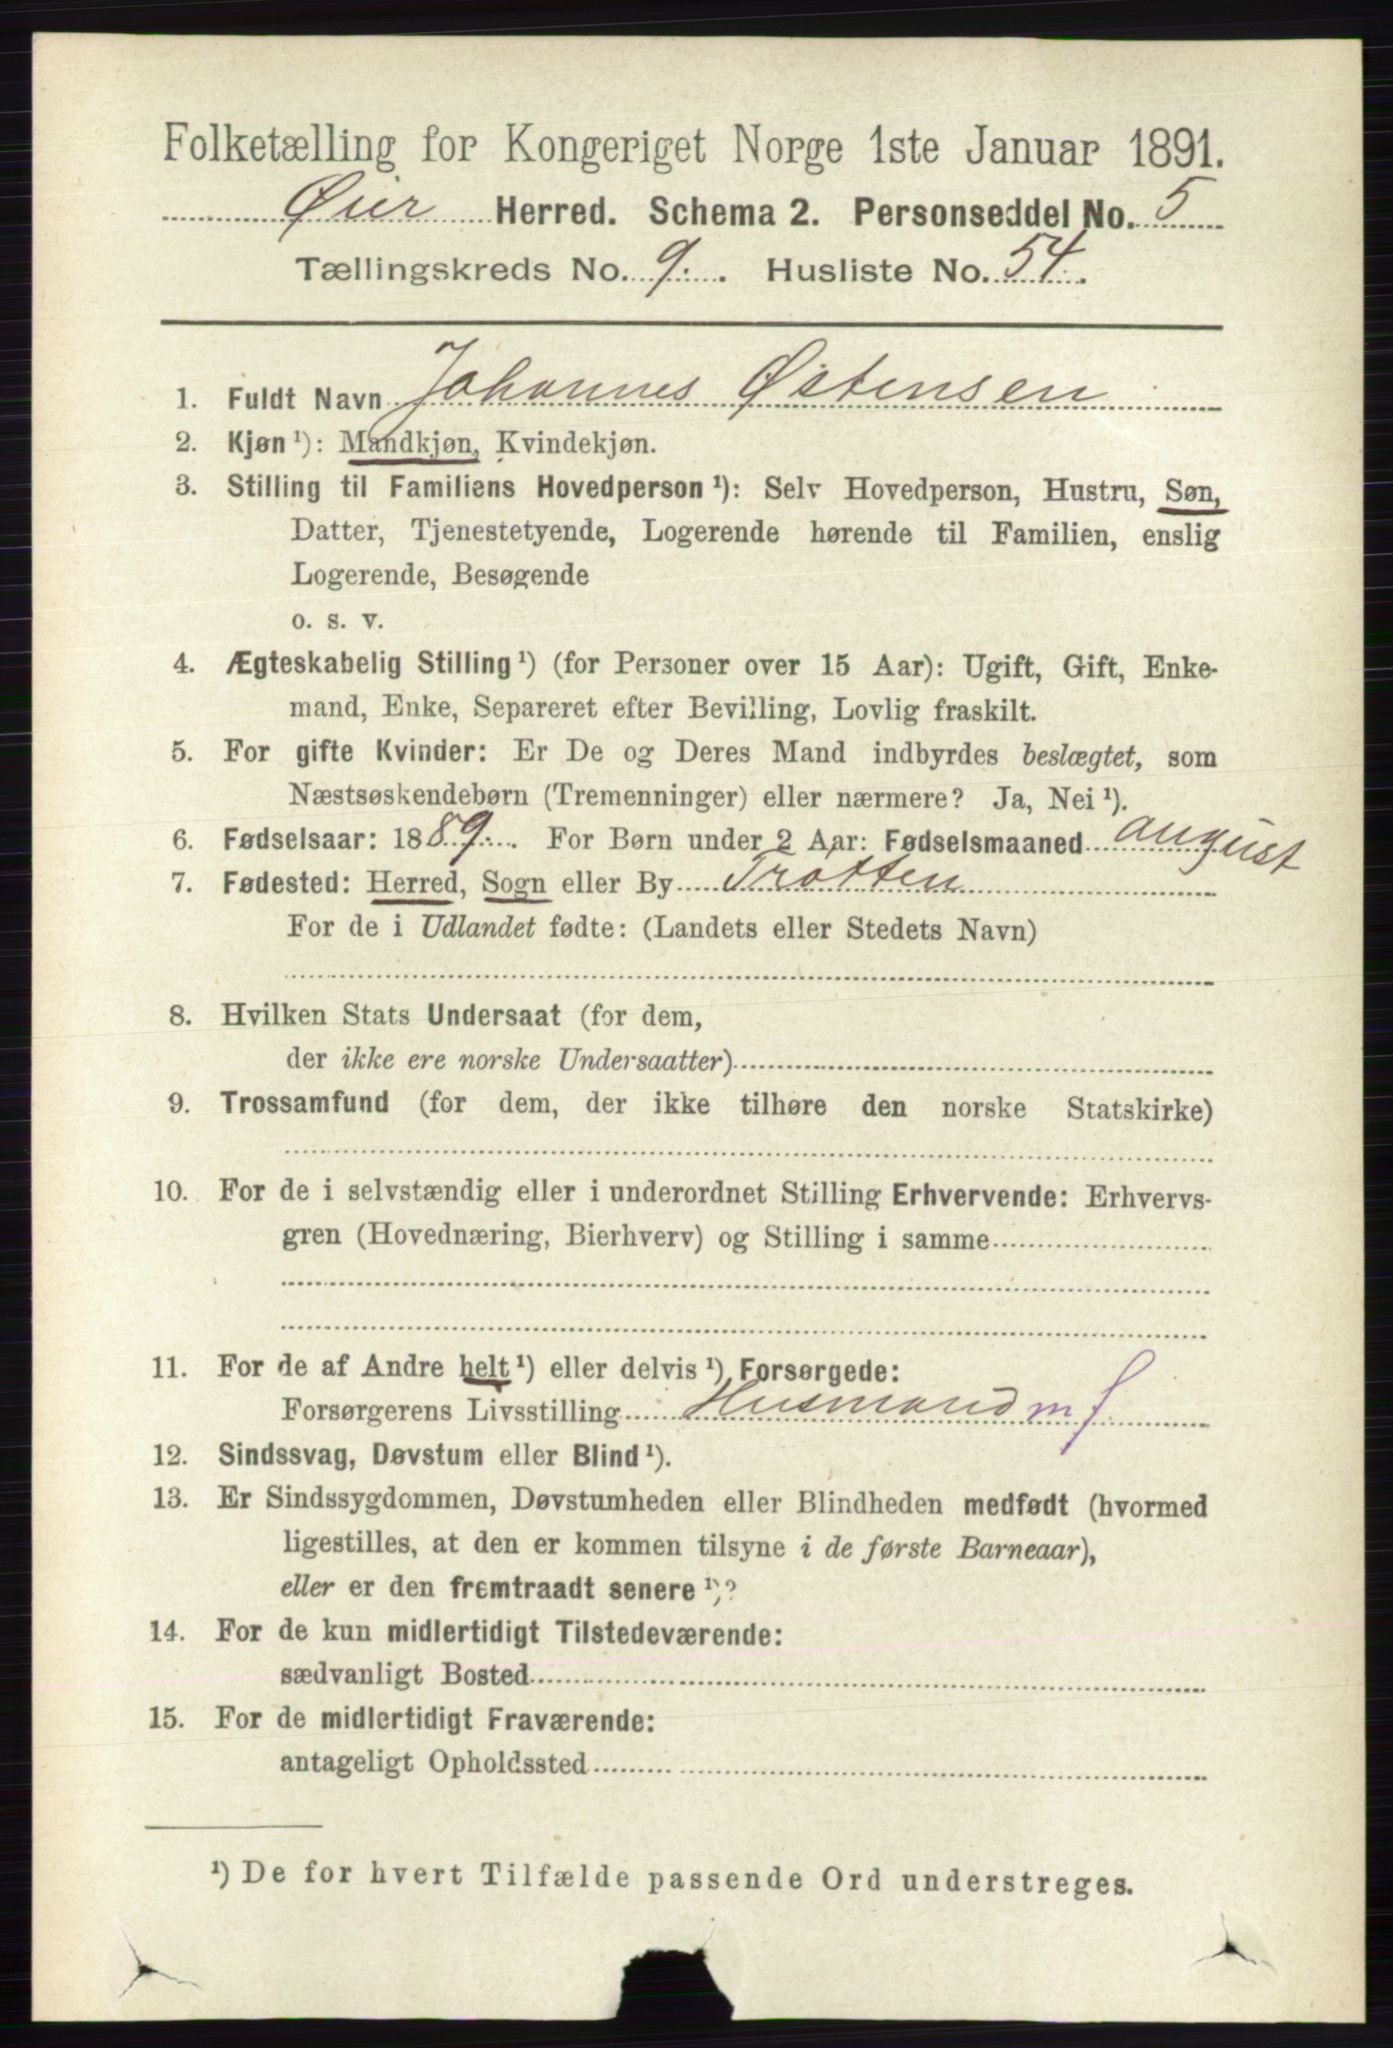 Folketælling for Kongeriget Norge 1ste Januar 1891.
Øier Herred. Schema 2. Personseddel No. 5
Tællingskreds No. 9. Husliste No. 54.
1. Fuldt Navn Johannes Østensen
2. Kjøn ¹): Mandkjøn, Kvindekjøn.
3. Stilling til Familiens Hovedperson ¹): Selv Hovedperson, Hustru, Søn,
Datter, Tjenestetyende, Logerende hørende til Familien, enslig
Logerende, Besøgende
o. s. v.
4. Ægteskabelig Stilling ¹) (for Personer over 15 Aar): Ugift, Gift, Enke-
mand, Enke, Separeret efter Bevilling, Lovlig fraskilt.
5. For gifte Kvinder: Er De og Deres Mand indbyrdes beslægtet, som
Næstsøskendebørn (Tremenninger) eller nærmere? Ja, Nei ¹).
6. Fødselsaar: 1889. For Børn under 2 Aar: Fødselsmaaned august
7. Fødested: Herred, Sogn eller By Trotten
For de i Udlandet fødte: (Landets eller Stedets Navn)
8. Hvilken Stats Undersaat (for dem,
der ikke ere norske Undersaatter)
9. Trossamfund (for dem, der ikke tilhøre den norske Statskirke)
10. For de i selvstændig eller i underordnet Stilling Erhvervende: Erhvervs-
gren (Hovednæring, Bierhverv) og Stilling i samme
11. For de af Andre helt ¹) eller delvis ¹) Forsørgede:
Forsørgerens Livsstilling Husmand m f.
12. Sindssvag, Døvstum eller Blind ¹).
13. Er Sindssygdommen, Døvstumheden eller Blindheden medfødt (hvormed
ligestilles, at den er kommen tilsyne i de første Barneaar),
eller er den fremtraadt senere ¹)?
14. For de kun midlertidigt Tilstedeværende:
sædvanligt Bosted
15. For de midlertidigt Fraværende:
antageligt Opholdssted
¹) De for hvert Tilfælde passende Ord understreges.